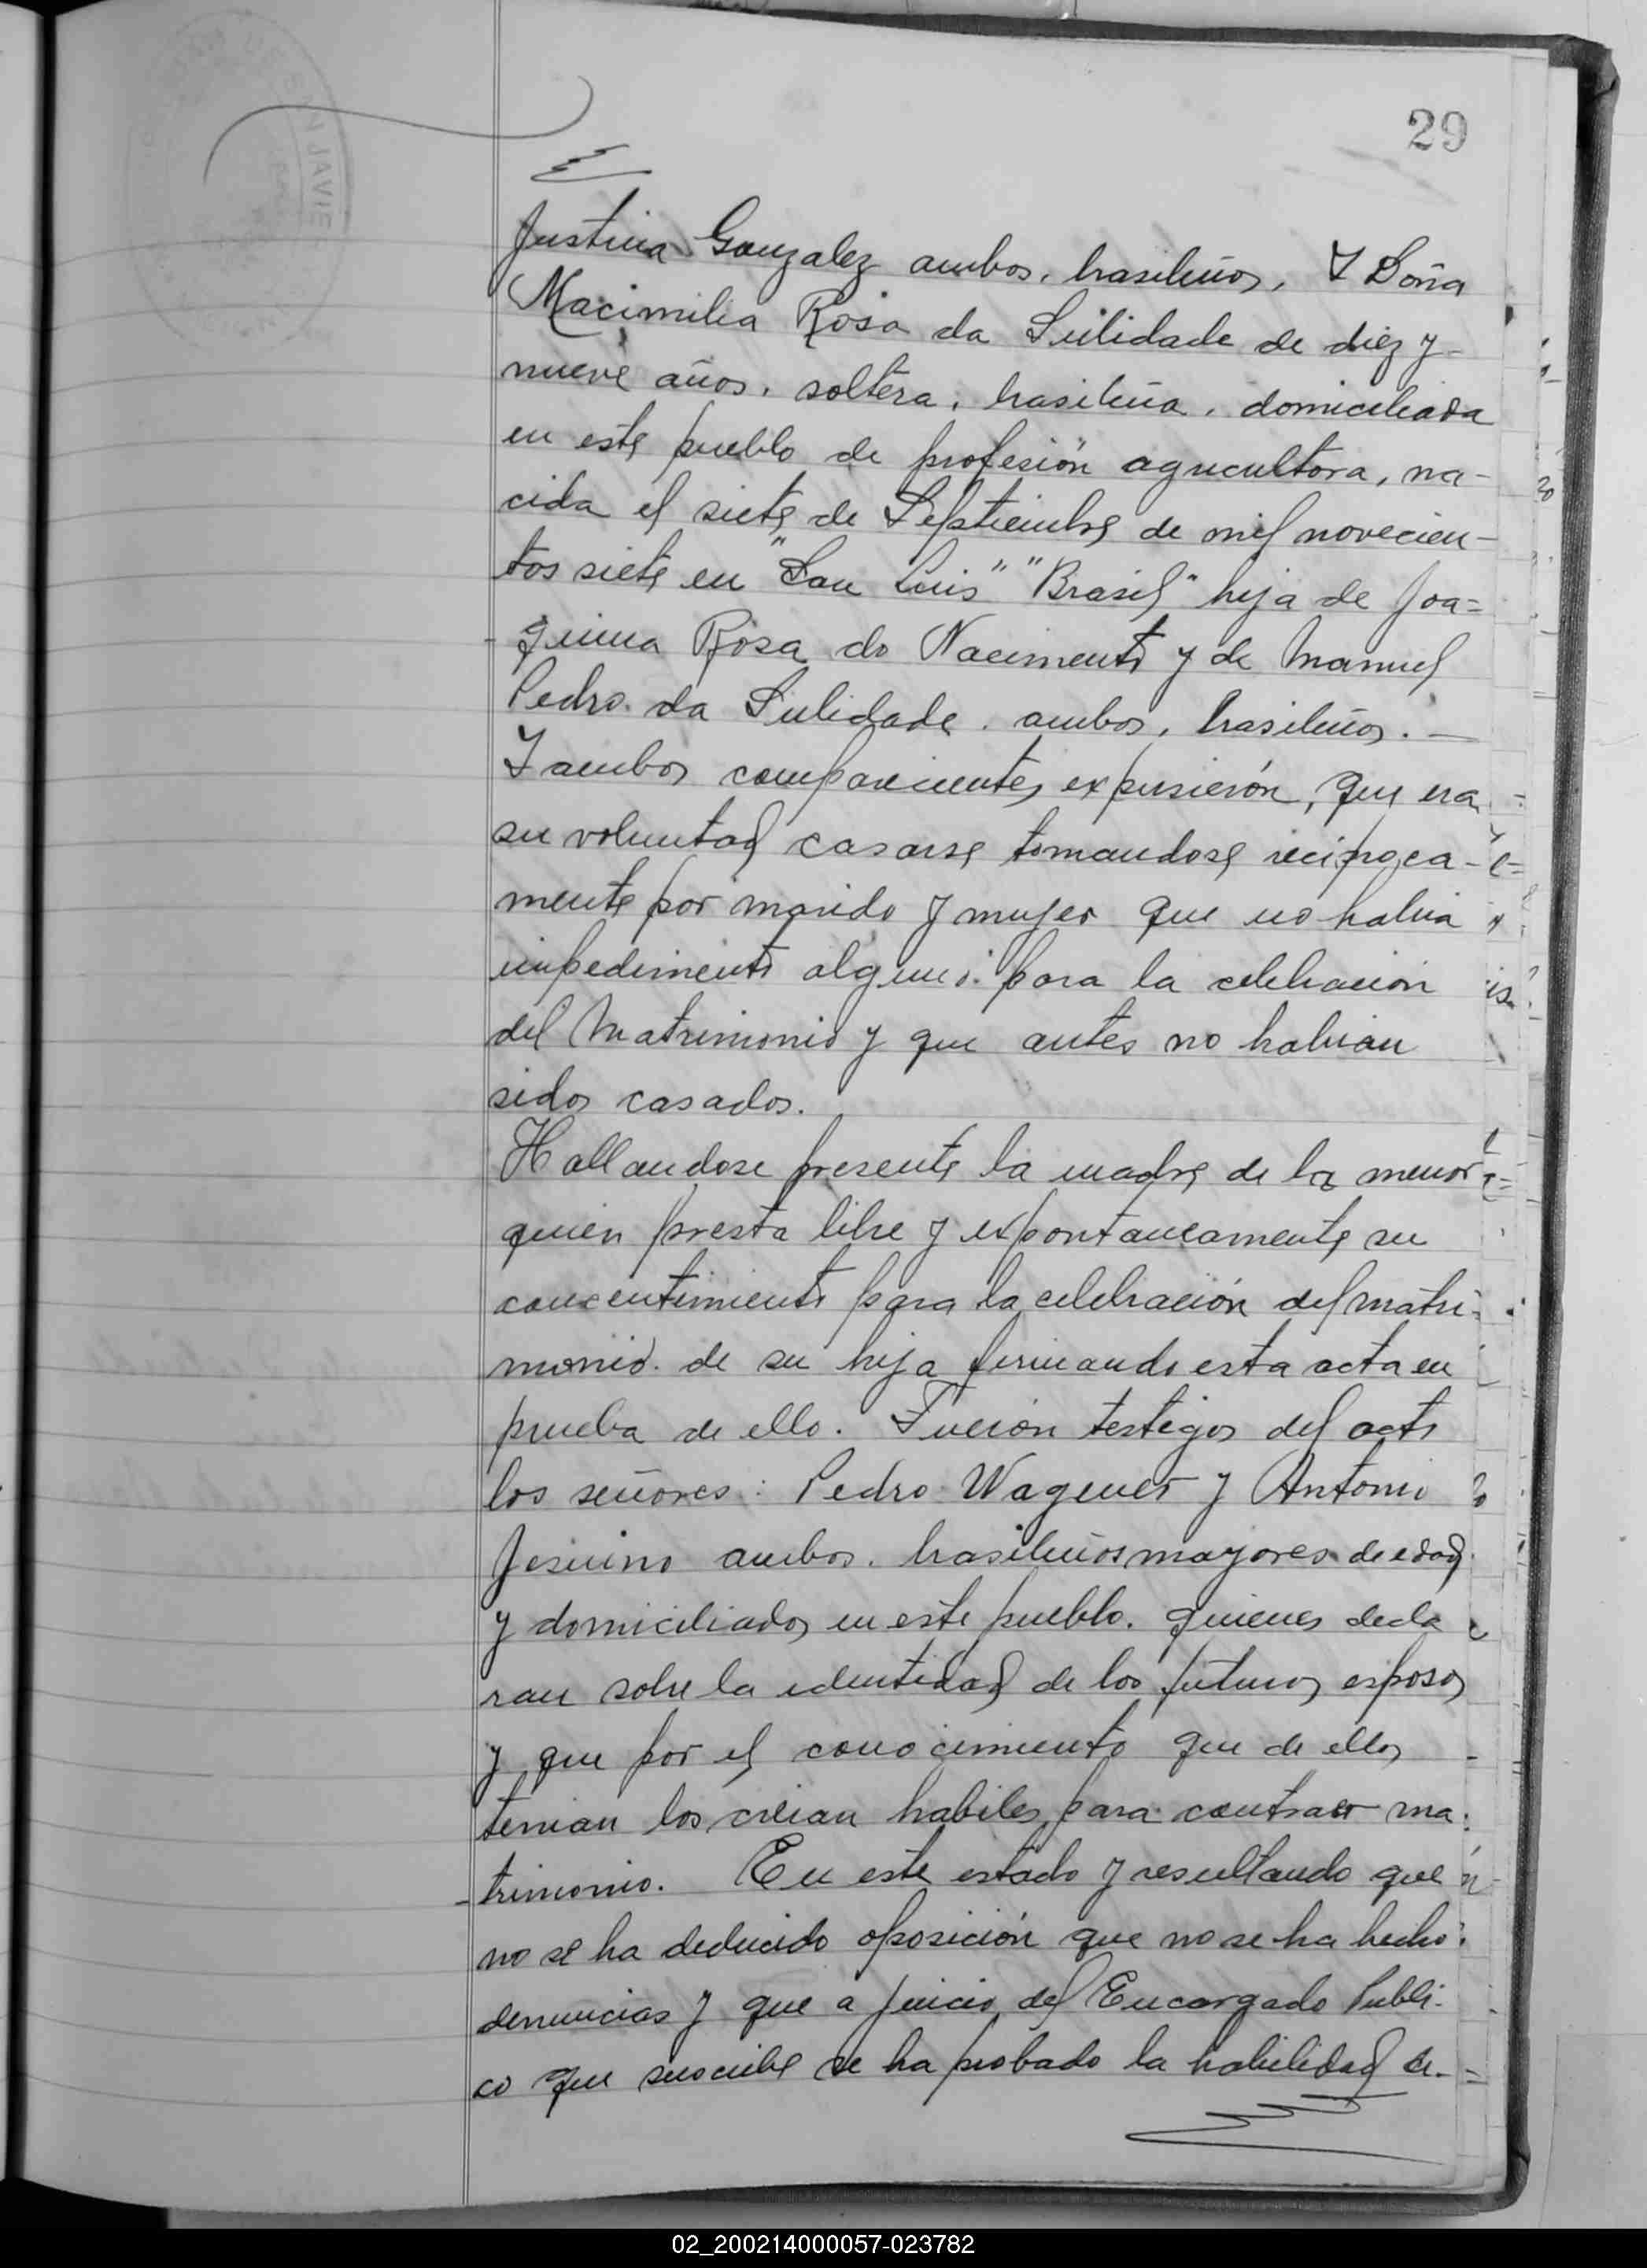 29
Justina Gonzalez ambos, brasileños, Y Doña
Macimilia Rosa da Silidade de diez y
nueve años, soltera, brasileña, domiciliada
en este pueblo de profesión agricultora, na-
cida el siete de Septiembre de mil novecien-
tos siete en "San Luis" "Brasil" hija de Joa=
quina Rosa do Nacimento y de Manuel
Pedro da Silidade, ambos, brasileños.-
Y ambos comparecientes expusierón, que era
su voluntad casarse tomandose reciproca-
mente por marido y mujer que no habia
impedimento alguno para la celebración
del Matrimonio y que antes no habian
sidos casados.
Hallandose presente la madre de la menor
quien presta libre y expontaneamente su
concentimiento para la celebración del matri-
monio de su hija firmando esta acta en
prueba de ello. Fuerón testigos del acto
los señores: Pedro Wagener y Antonio
Jesuino ambos brasileños mayores de edad
y domiciliados en este pueblo. quienes decla
ran sobre la identidad de los futuros esposos
y que por el conocimiento que de ellos
tenian los creian habiles para contraer ma-
trimonio. En este estado y resultando que
no se ha deducido oposición que no se ha hecho
denuncias y que a juicio del Encargado Publi-
co que suscribe se ha probado la habilidad de-
JAVIE
02_200214000057-023782